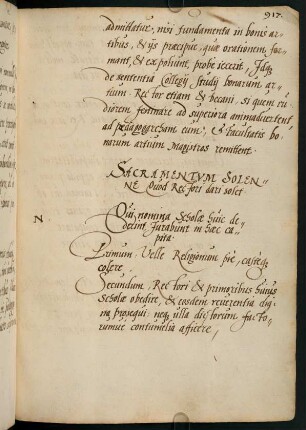 917.
admittatur, nisi fundamenta in bonis ar-
tibus, & ijs præcipue, quæ orationem for-
mant, & expoliunt, probe iecerit. Idq;
de sententia Collegij studij bonarum ar-
tium. Rector etiam & Decani, si quem ru-
diorem festinare ad superiora animaduerterint
ad pædagogarcham eum, & facultatis bo-
narum artium Magistros remittent.
SACRAMENTVM SOLEN-
NE Quod Rectori dari solet
N
Qui nomina Scholæ huic de-
derint, iurabunt in hæc ca-
pita.
Primum, Velle Religionem pie, casteq;
colere.
Secundum, Rectori & primoribus huius
Scholæ obedire, & eosdem reuerentia dig-
na prosequi: neq; ulla dictorum facto-
rumue contumelia afficere.